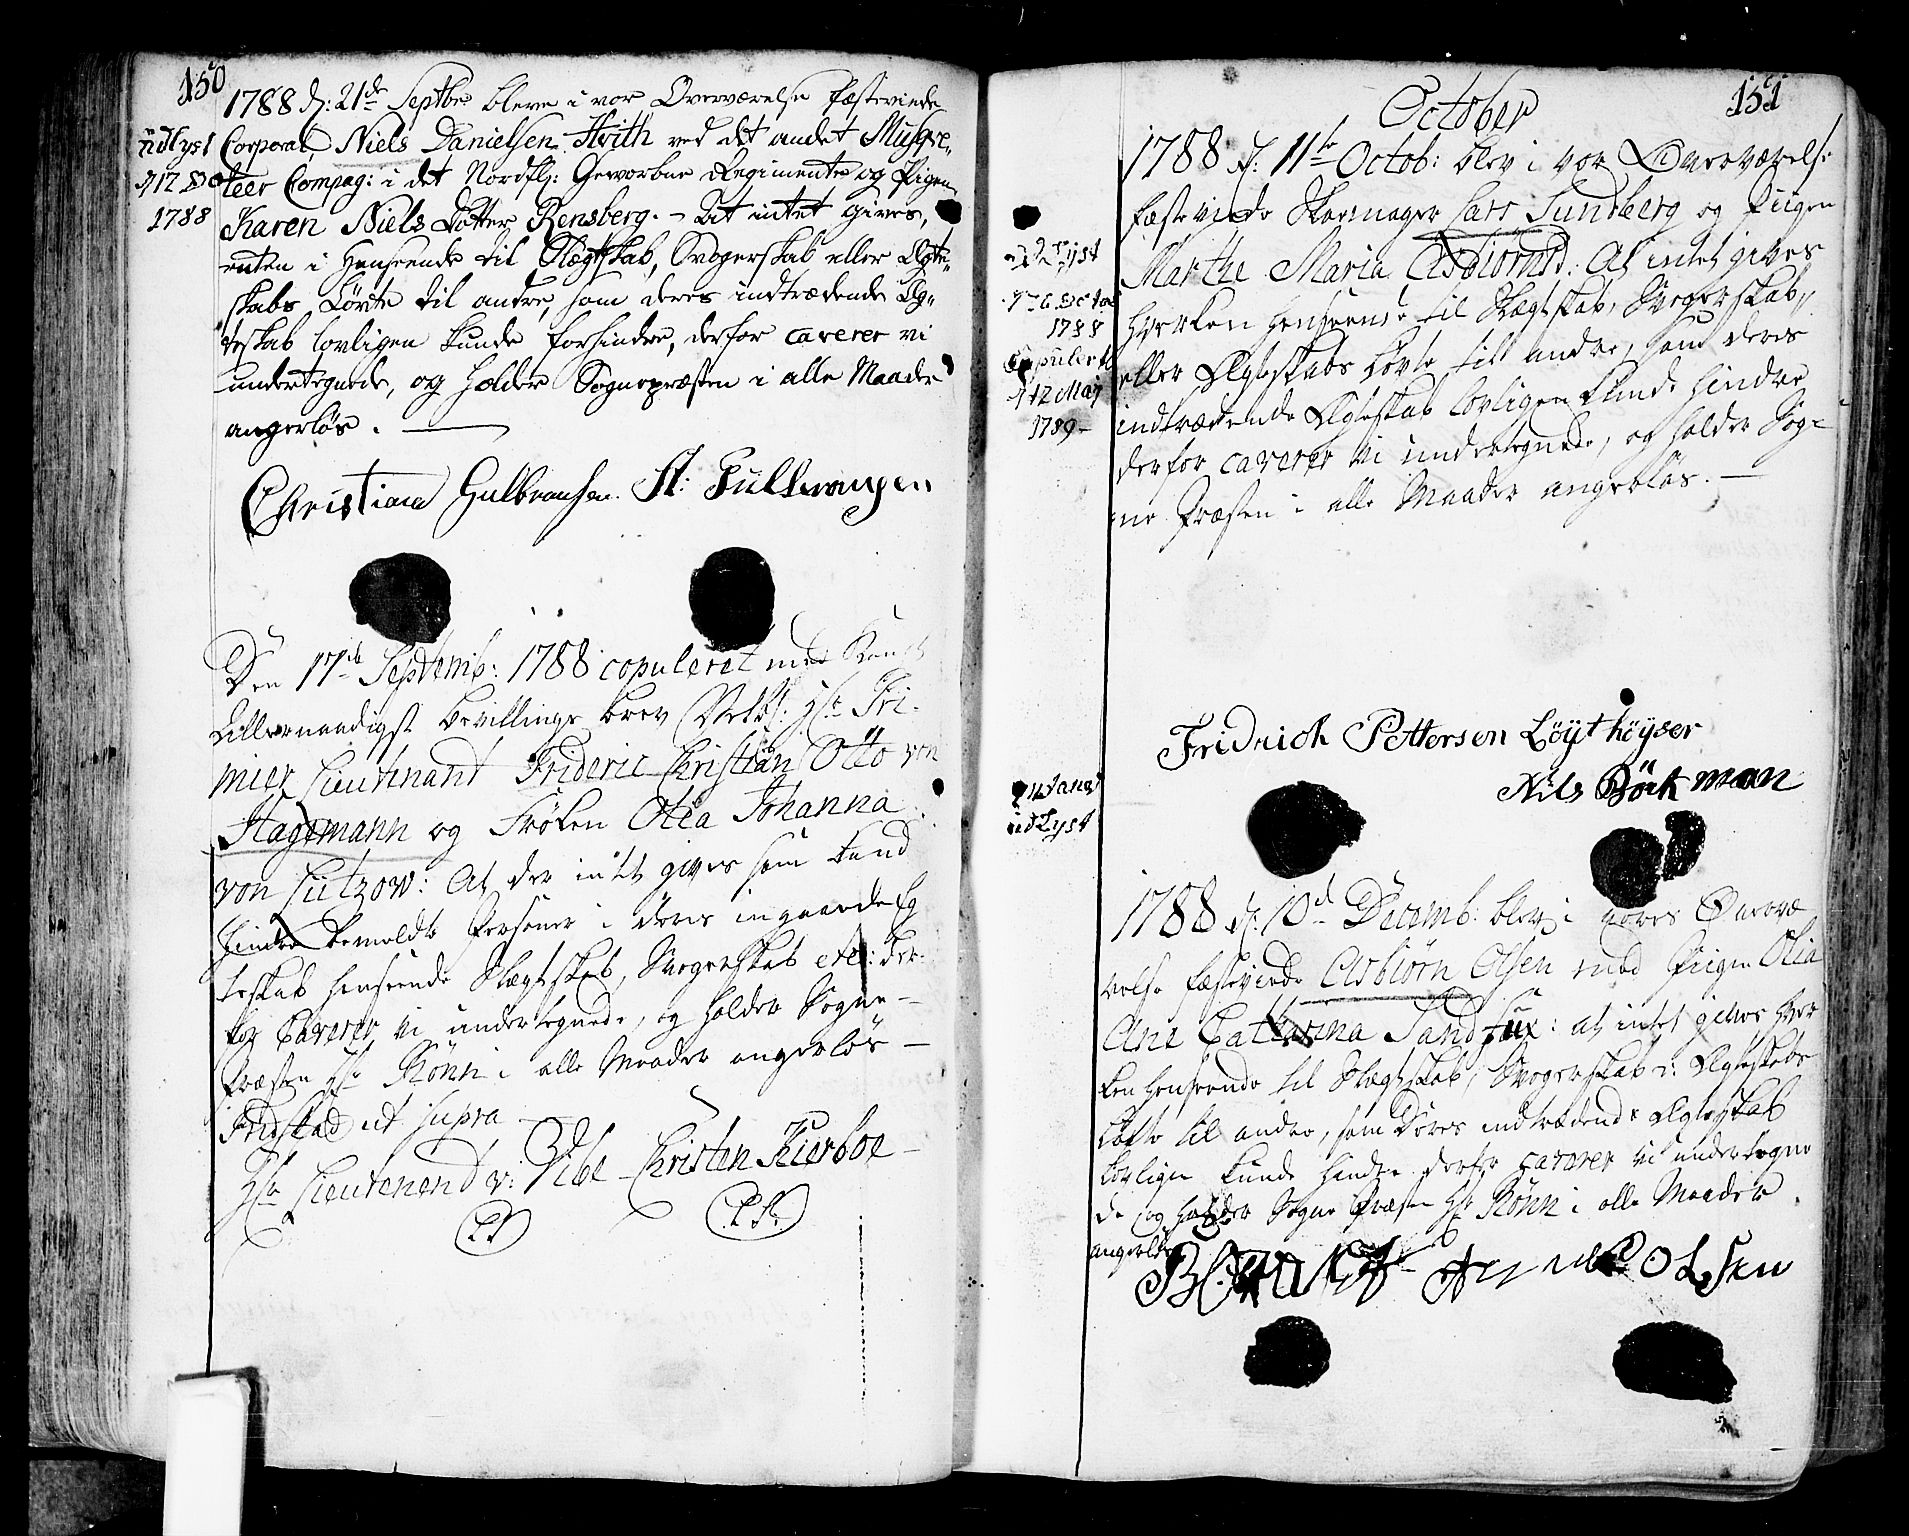 150
1788 d: 21de Septbr bleve i vor Overværelse fæstevinde
Corporal, Niels Danielsen Hvith ved det andet Musqve-
teer Compag: i det Nordfl: Geworbne Regimente og Pigen
Karen Niels Dotter Rensberg. - At intet gives,
enten i Henseende til Slægtskab, Svogerskab eller Ægte-
skabs Løvte til andre, som deres indtrædende Æg-
teskab lovligen kunde forhindre, derfor caverer vi
undertegnede, og holder Sognepræsten i alle Maader
angerløs.
udlyst
1788
Christian Gulbransen
Den 17de Septemb: 1788 copuleret med Kongl
Allernaadigst bevillings brev Velb: Hr Pri-
mier Lieutnant Frideric Christian Otto von
Hagemann og Frøken Otia Johanna
von Lützow: At der intet gives som kand
hindre bemeldte Personer i deres ingaaende Eg
teskab henseende Slægtskab, Svogerskab etc: der-
for Caverer vi undertegnede, og holder Sogne-
Præsten Hr Rønn i alle Maader angerløs -
Fridstad ut supra
Hr Lieutenend v: Vibe - Christen Kierboe -
LS LS
151
October
1788 d: 11te Octob: blev i vor Overværelse
fæstevinde Skoemager Lars Sundberg og Piigen
Marthe Maria Asbiörnsd: At intet gives
hverken henseende til Slægtskab, Svogerskab,
eller Ægteskabs Løvte till andre, som deres
indtrædende Ægteskab lovligen kunde hindre
derfor caverer vi undertegnede, og holder Sog-
ne Præsten i alle Maader angerløs. -
udlyst
1788
Copuleret
d 12 May
1789 -
Fridrich Pettersen Löytköyser
Nils Börkman
udlyst
1788 d: 10de Decemb: blev i vores Overvæ
relse fæstevinde Asbiørn Olsen med Piigen Olia
Ane Catharina Sandfux: at intet gives hver
ken henseende til Slægtskab, Svogerskab i: Ægteskabs
Løfte til andre, som Deres indtrædende Ægteskab
lovligen kunde hindre derfor caverer vi undertegne
de og holder Sogne Præsten Hr Rønn i alle Maader
angerløs
Olsen